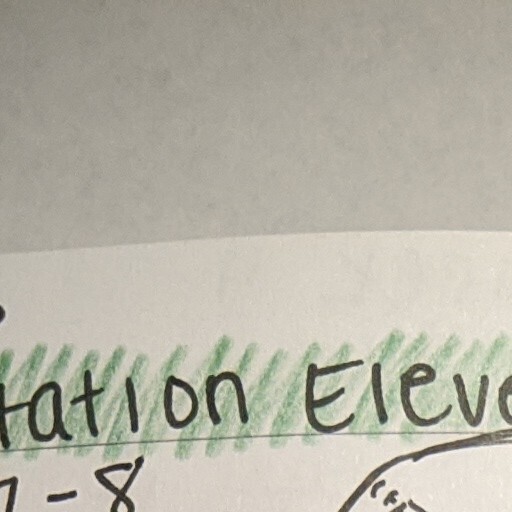 tation Eleve
7-8